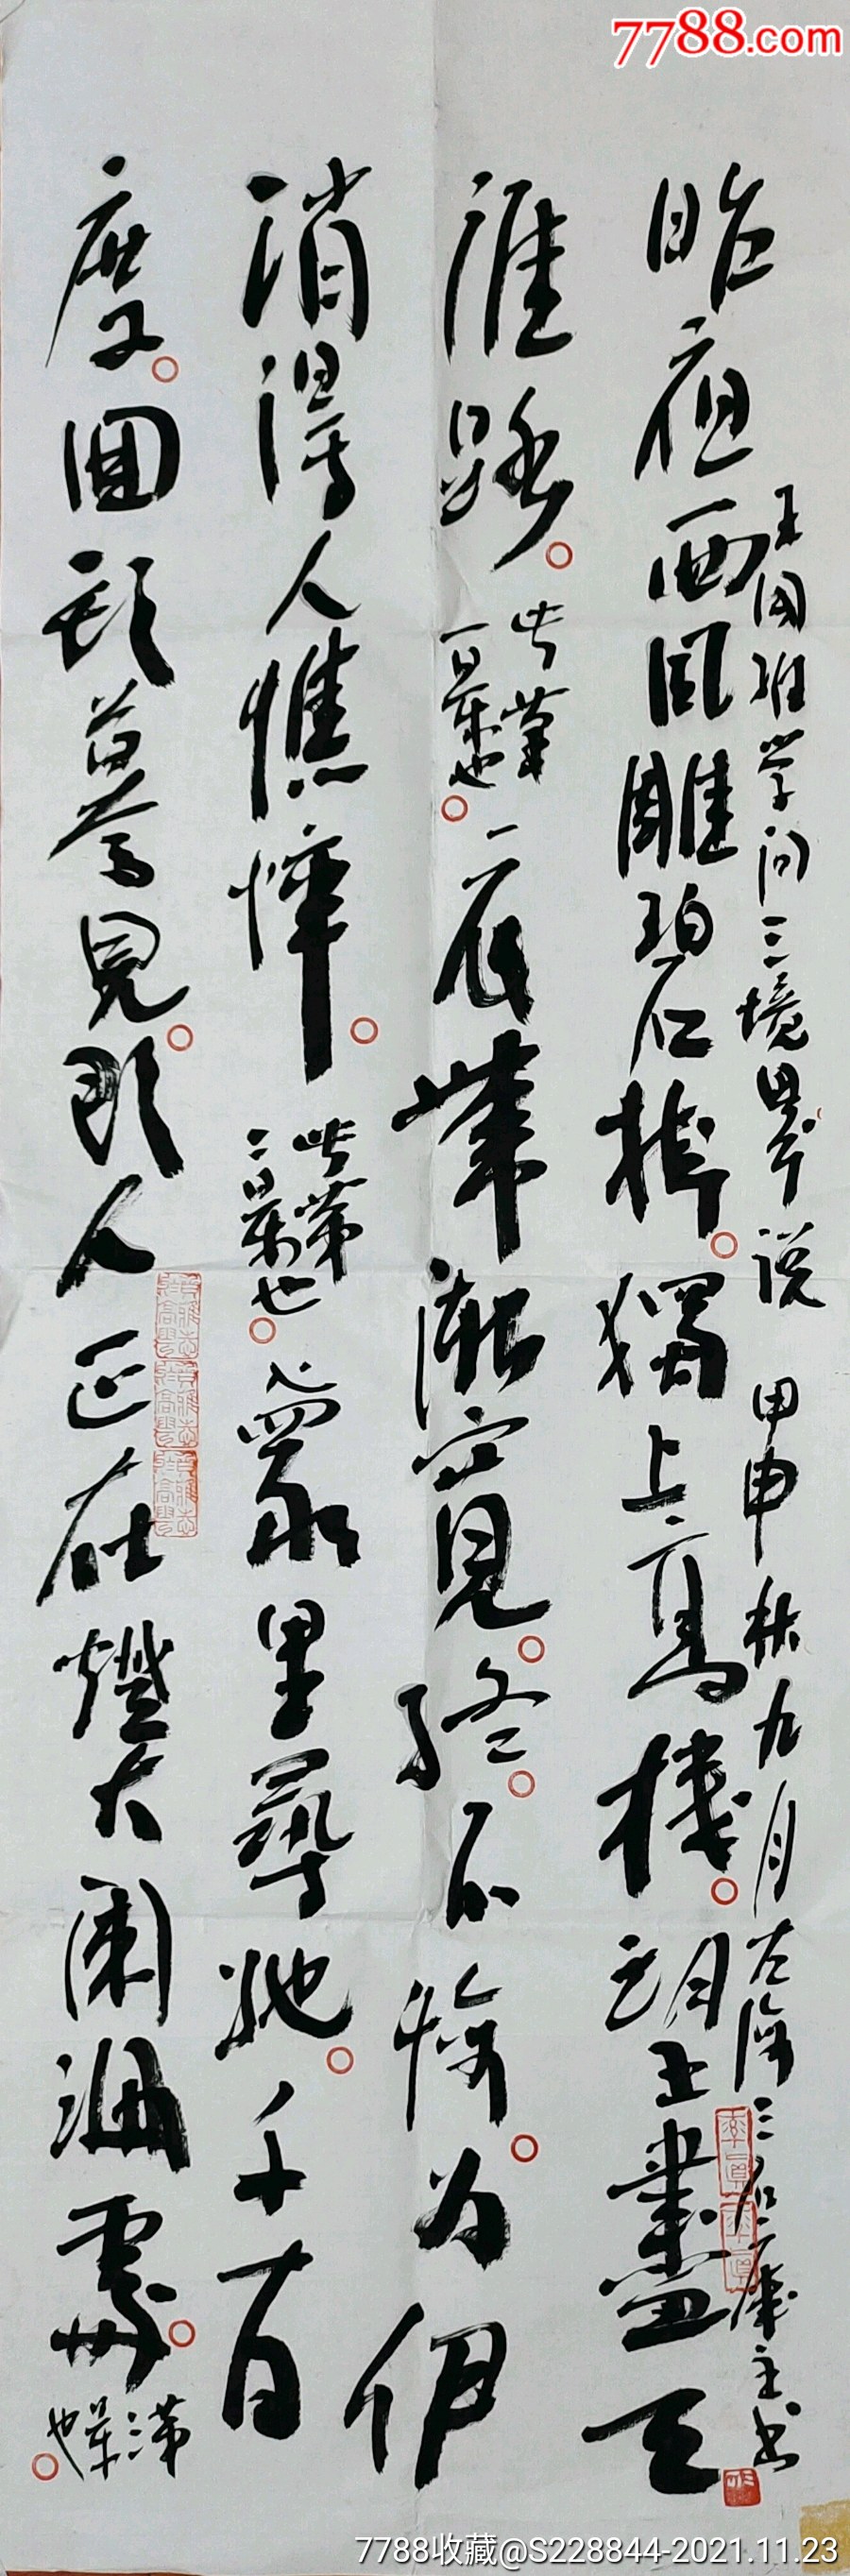 7788.com
王国维学问三境界说 甲申秋九月古海三石斋主书
昨夜西風雕碧樹。獨上高樓。望盡天
涯路。此第一界也。衣帶漸寬。終。不悔。为伊
消得人憔悴。此第二界也。眾里尋她。千百
度。回頭驀見。那人正在燈火闌珊處。第三界也。
7788收藏@S228844-2021.11.23